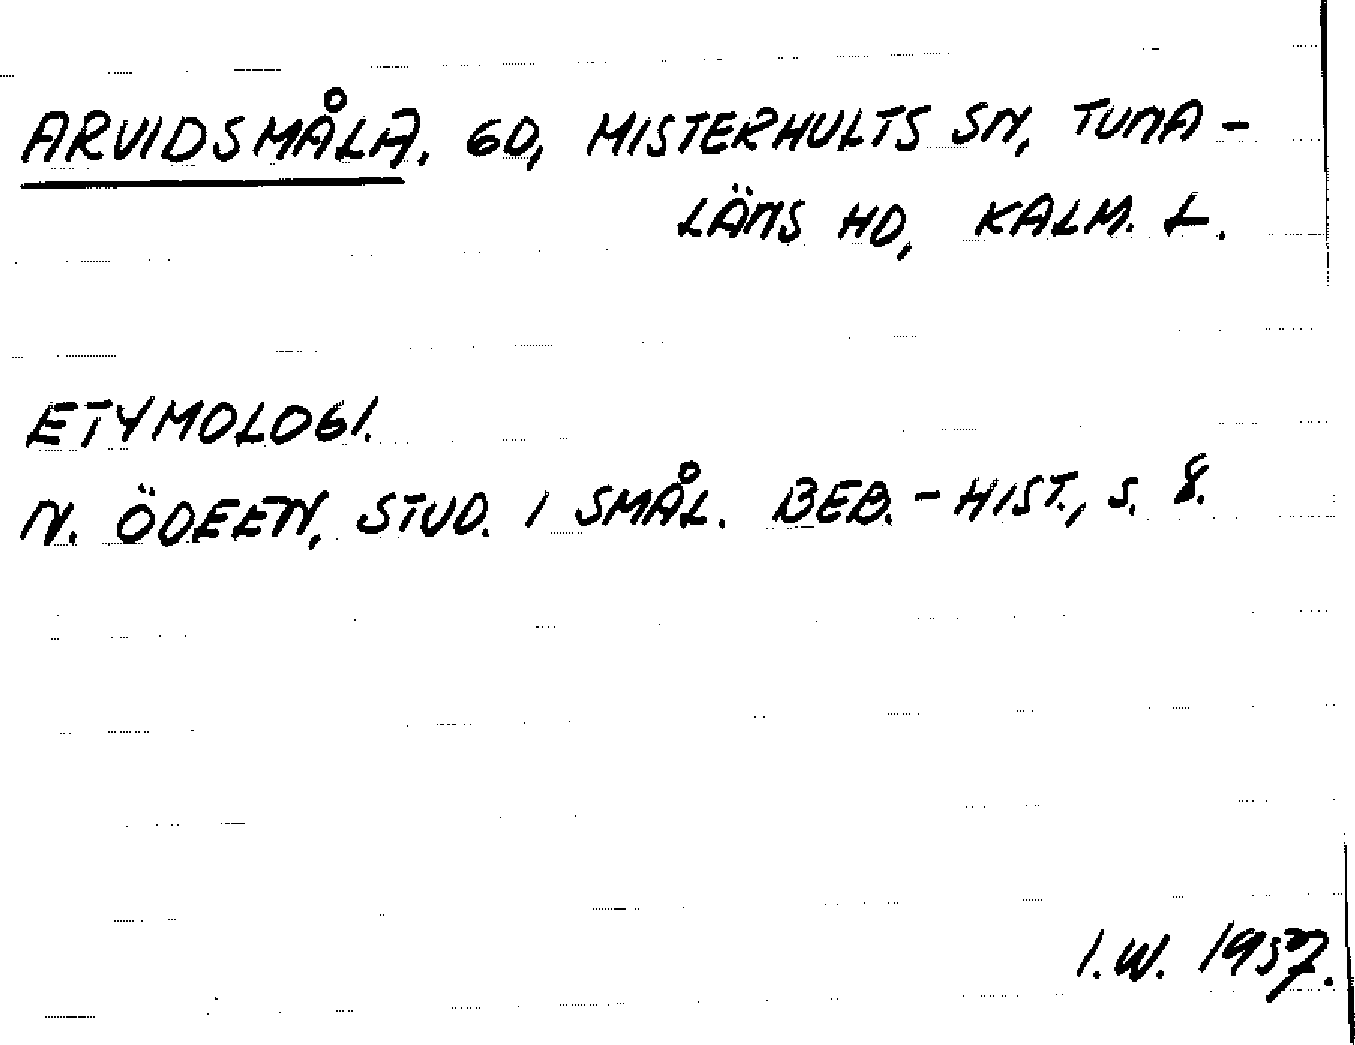 ARVIDSMÅLA, GD, MISTERHULTS SN, TUNA-
LÄNS HD, KALM. L.
ETYMOLOGI.
N. ÖDEEN, STUD. I SMÅL. BEB.-HIST., S. 8.
I.W. 1957.